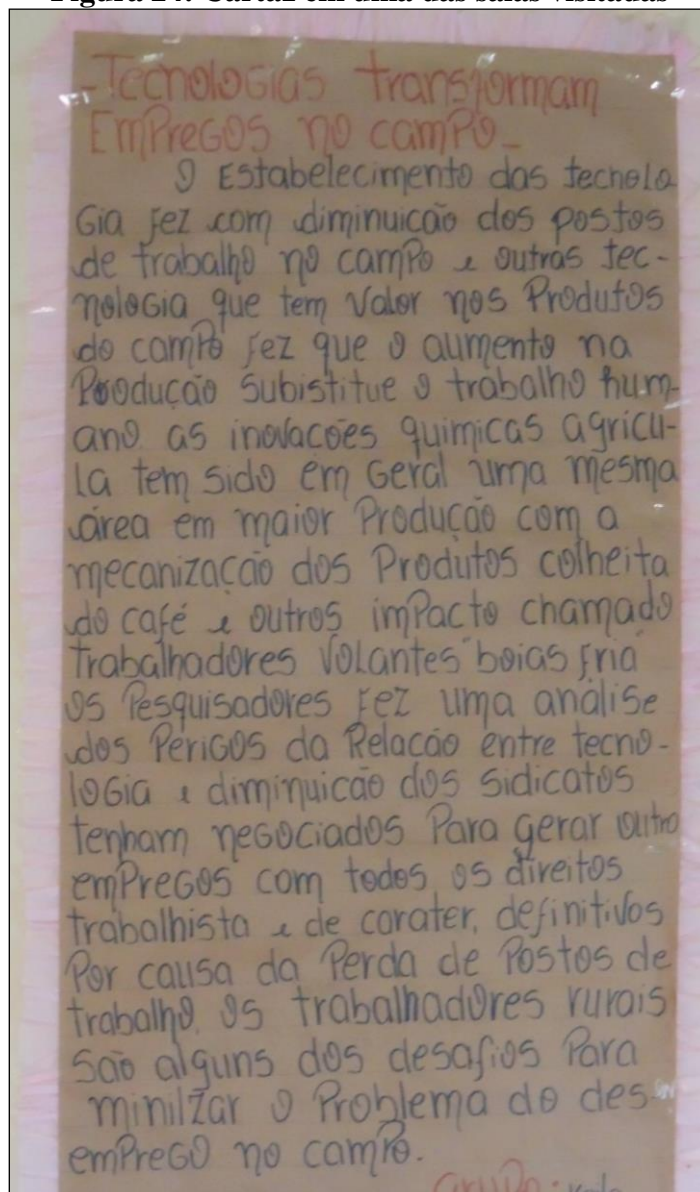 Figura 24: Cartaz em uma das salas visitadas
-Tecnologias transformam
EmPregos no campo-
O Estabelecimento das tecnolo
Gia fez com diminuicão dos postos
de trabalho no camPo e outras tec-
nologia que tem valor nos Produtos
do campo fez que o aumento na
Poodução Subistitue o trabalho hum-
ano. as inovacões quimicas agricu-
la tem sido em Geral uma mesma
área em maior Producão com a
mecanizacão dos Produtos colheita
do café e outros imPacto chamado
trabalhadores volantes" boias fria
os Pesquisadores fez uma análise
dos Perigos da Relacão entre tecno-
logia e diminuicão dos sidicatos
tenham negociados Para gerar outro
emPregos com todos os direitos
trabalhista e de corater, definitivos
Por causa da Perda de Postos de
trabalho. os trabalhadores rurais
São alguns dos desafios Para
minilzar o Problema do des-
emPrego no camPo.
GruPo: